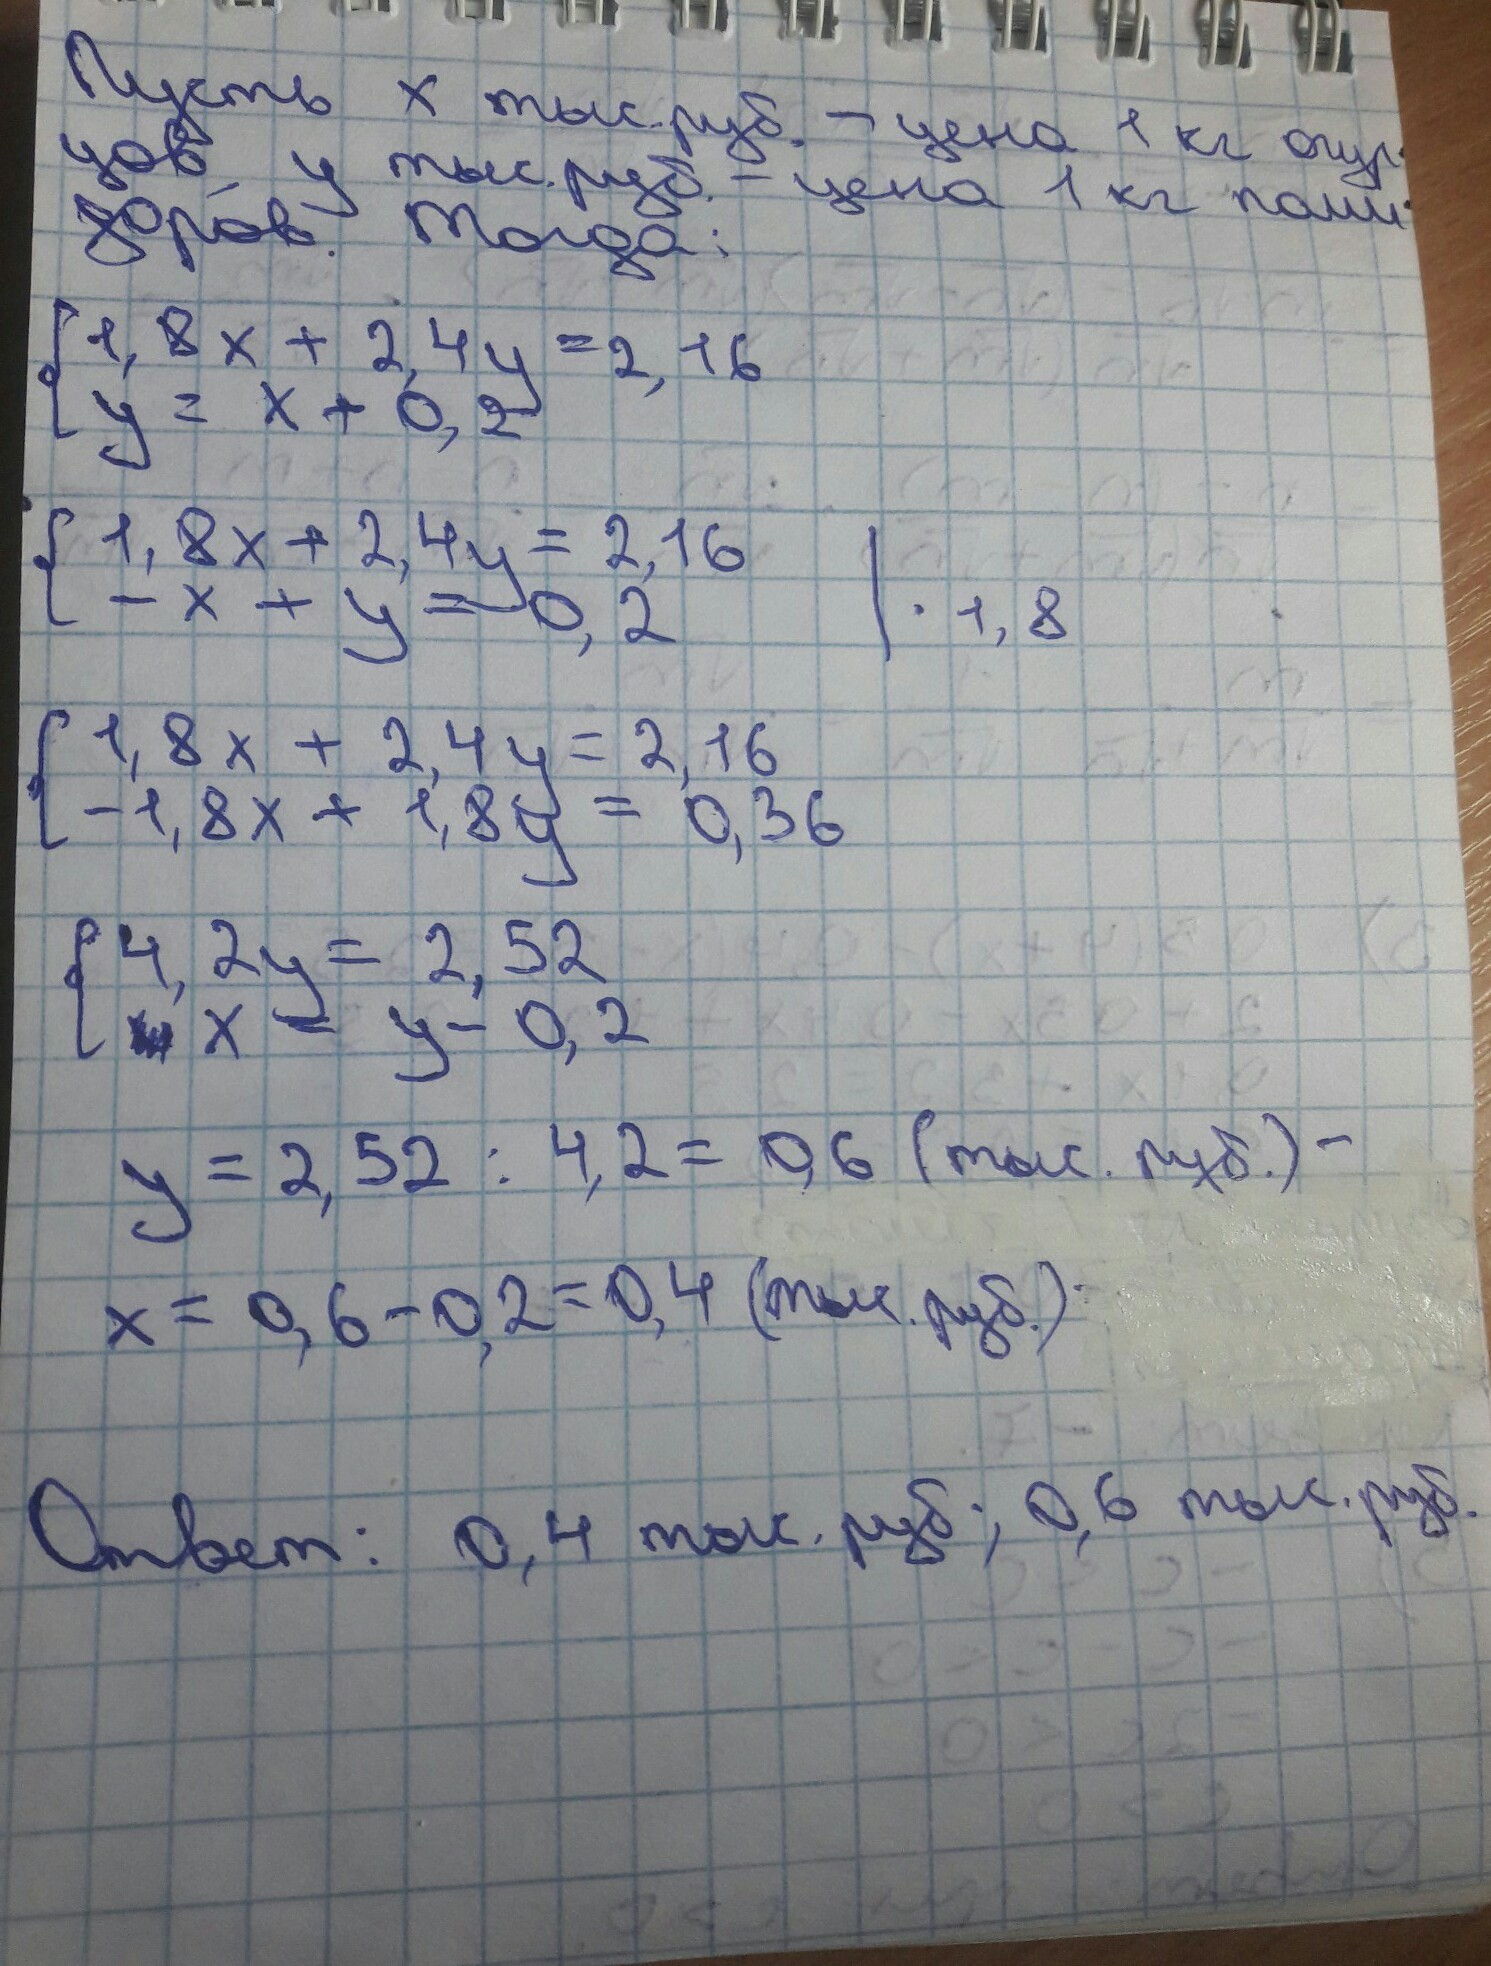 Пусть x тыс.руб. - цена 1 кг огур-
цов, y тыс.руб. - цена 1 кг поми-
доров. Тогда:
{1,8x + 2,4y = 2,16
{y = x + 0,2
{1,8x + 2,4y = 2,16
{-x + y = 0,2 | · 1,8
{1,8x + 2,4y = 2,16
{-1,8x + 1,8y = 0,36
{4,2y = 2,52
{x = y - 0,2
y = 2,52 : 4,2 = 0,6 (тыс. руб.) -
x = 0,6 - 0,2 = 0,4 (тыс. руб.) -
Ответ: 0,4 тыс. руб.; 0,6 тыс. руб.